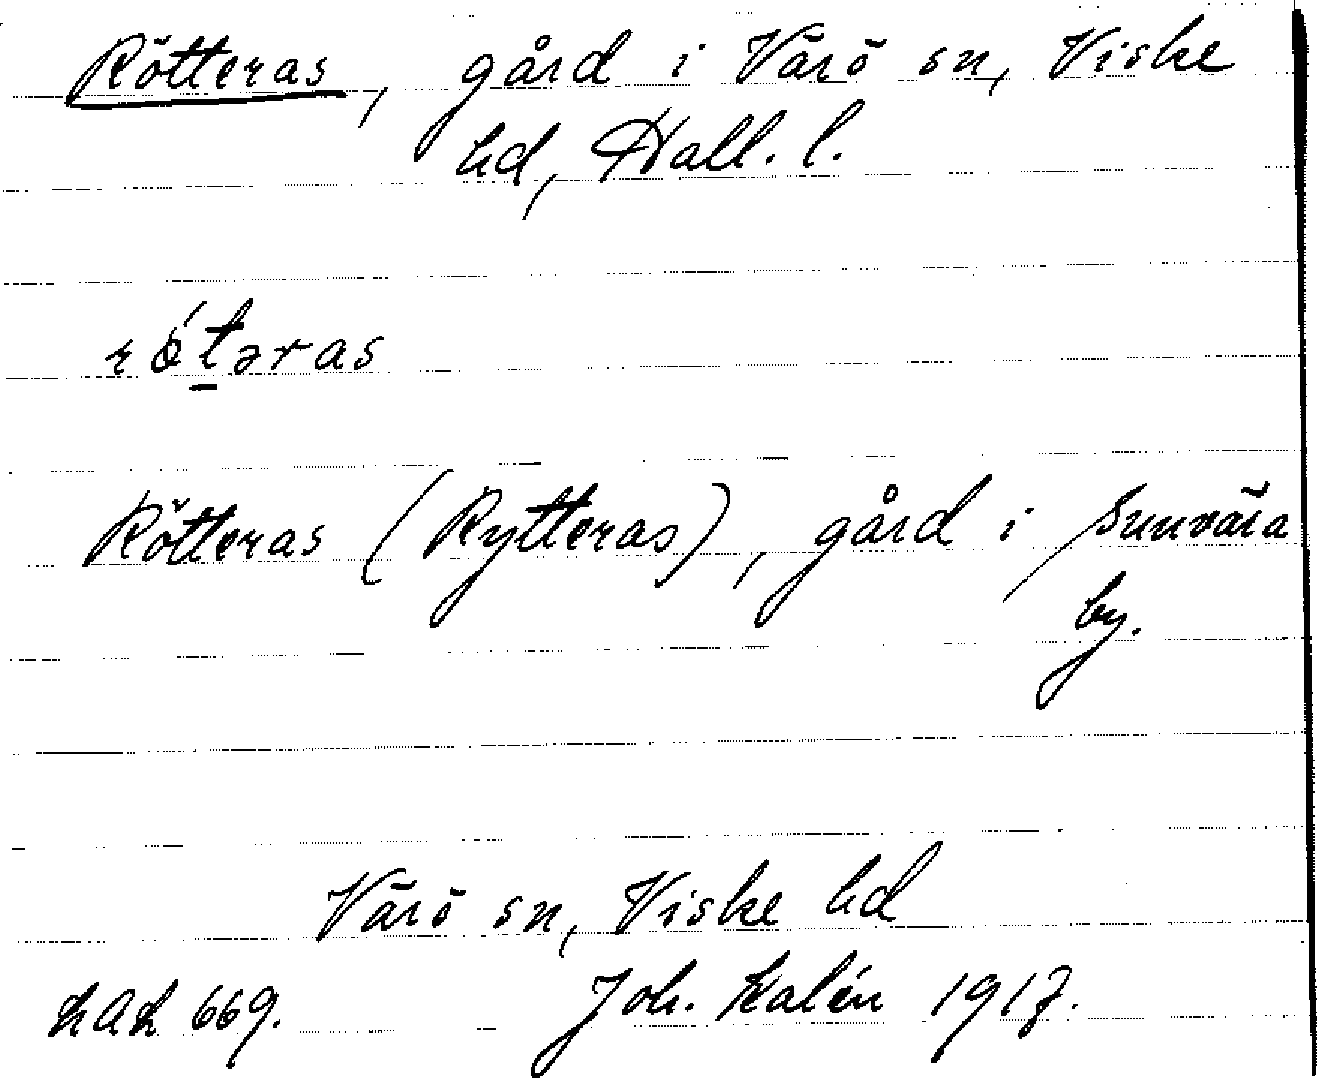 Rötteras, gård i Värö sn, Viske
hd, Hall. l.
rót̠əras
Rötteras (Rytteras), gård i Sunvära
by.
Värö sn, Viske hd
LAL 669. Joh. Kalén 1917.